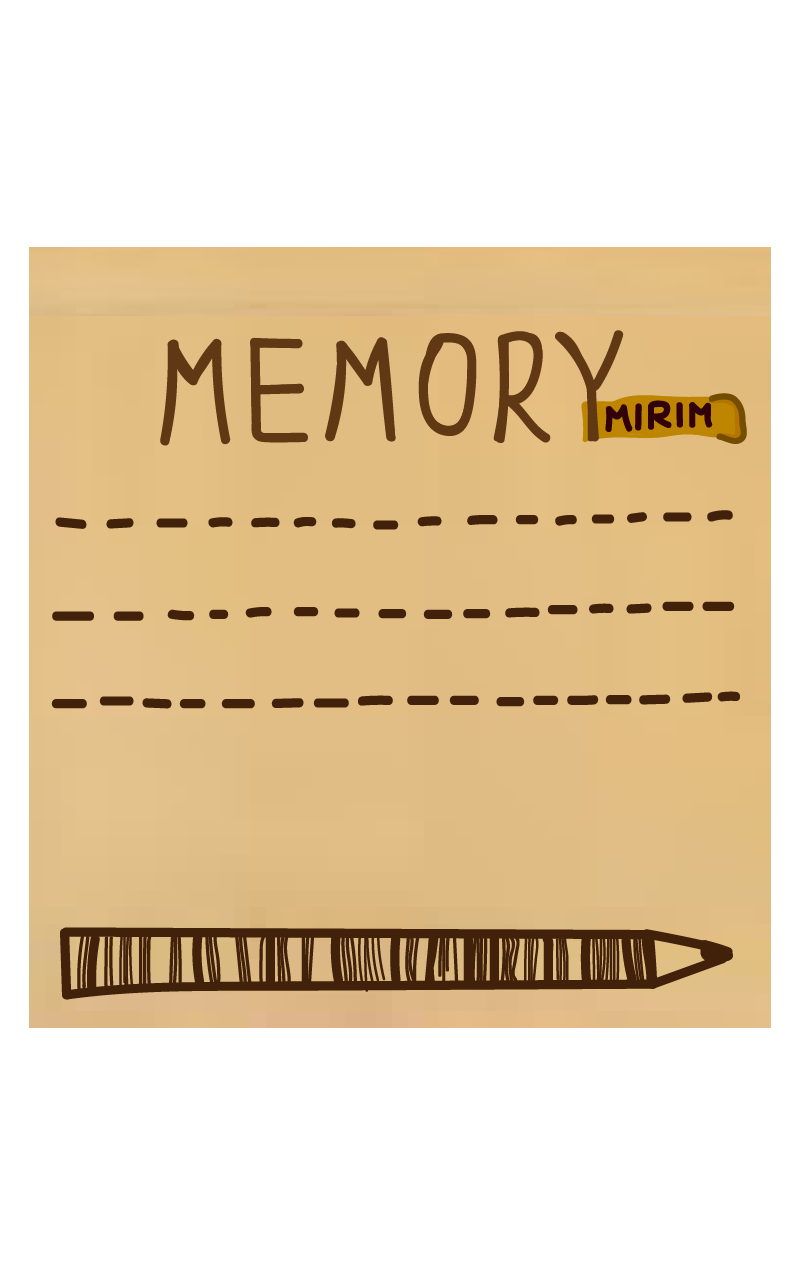 MEMORY
MIRIM